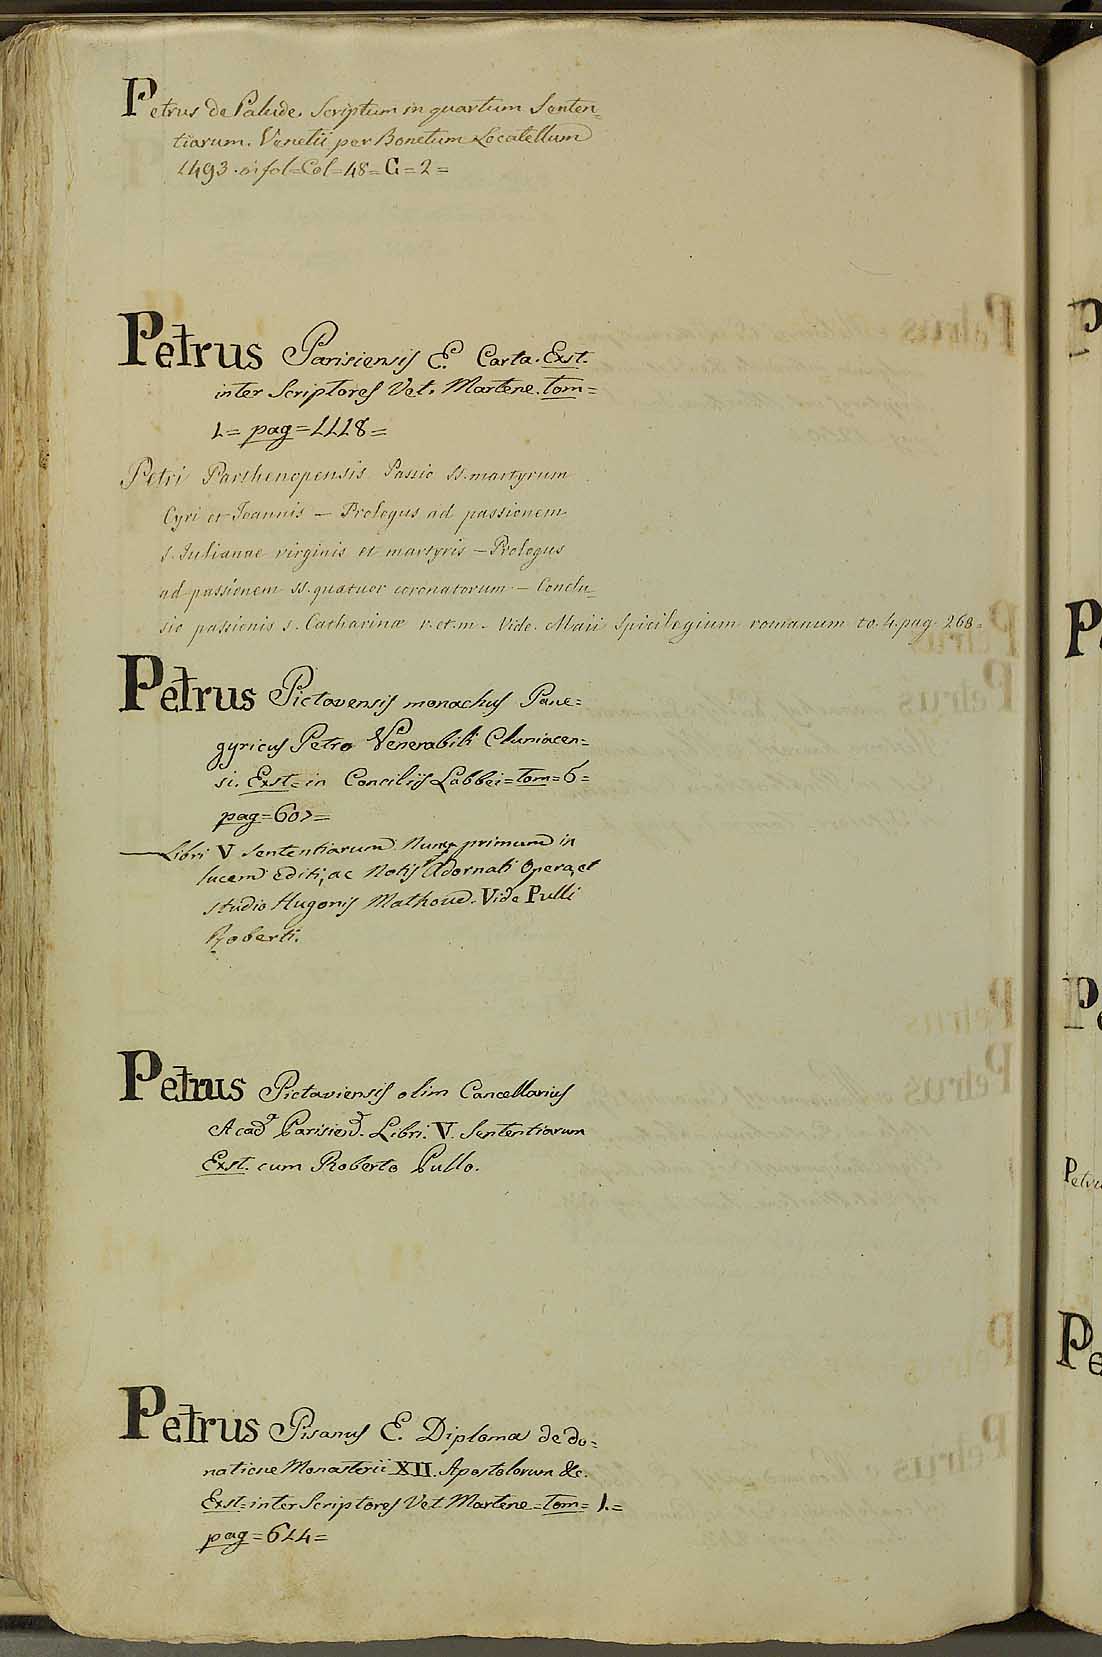 Petrus de Palude Scriptum in quartum Senten=
tiarum. Venetii per Bonetum Locatellum
1493. in fol=Col=48=G=2=
Petrus Parisiensis E. Carta. Exst.
inter Scriptores Vet. Martene. tom=
1= pag=1118=
Petri Parthenopensis Passio SS. martyrum
Cyri et Joannis — Prologus ad passionem
s. Iulianae virginis et martyris — Prologus
ad passionem SS. quatuor coronatorum — Conclu=
sio passionis s. Catharinæ v. et. m. Vide. Maii Spicilegium romanum to. 4. pag. 268=
Petrus Pictavensis monachus Pane=
gyricus Petro Venerabili Cluniacen=
si. Exst=in Conciliis Labbei=tom=6=
pag=607=
— Libri V Sententiarum Nunc primum in
lucem editi, ac Notis Adornati Opera, et
studio Hugonis Mathoud. Vide Pulli
Roberti.
Petrus Pictaviensis olim Cancellarius
Acad. Parisien. Libri. V. Sententiarum
Exst. cum Roberto Pullo.
Petrus Pisanus E. Diploma de do=
natione Monasterii XII. Apostolorum &c.
Exst=inter Scriptores Vet Martene=tom= 1.=
pag=614=